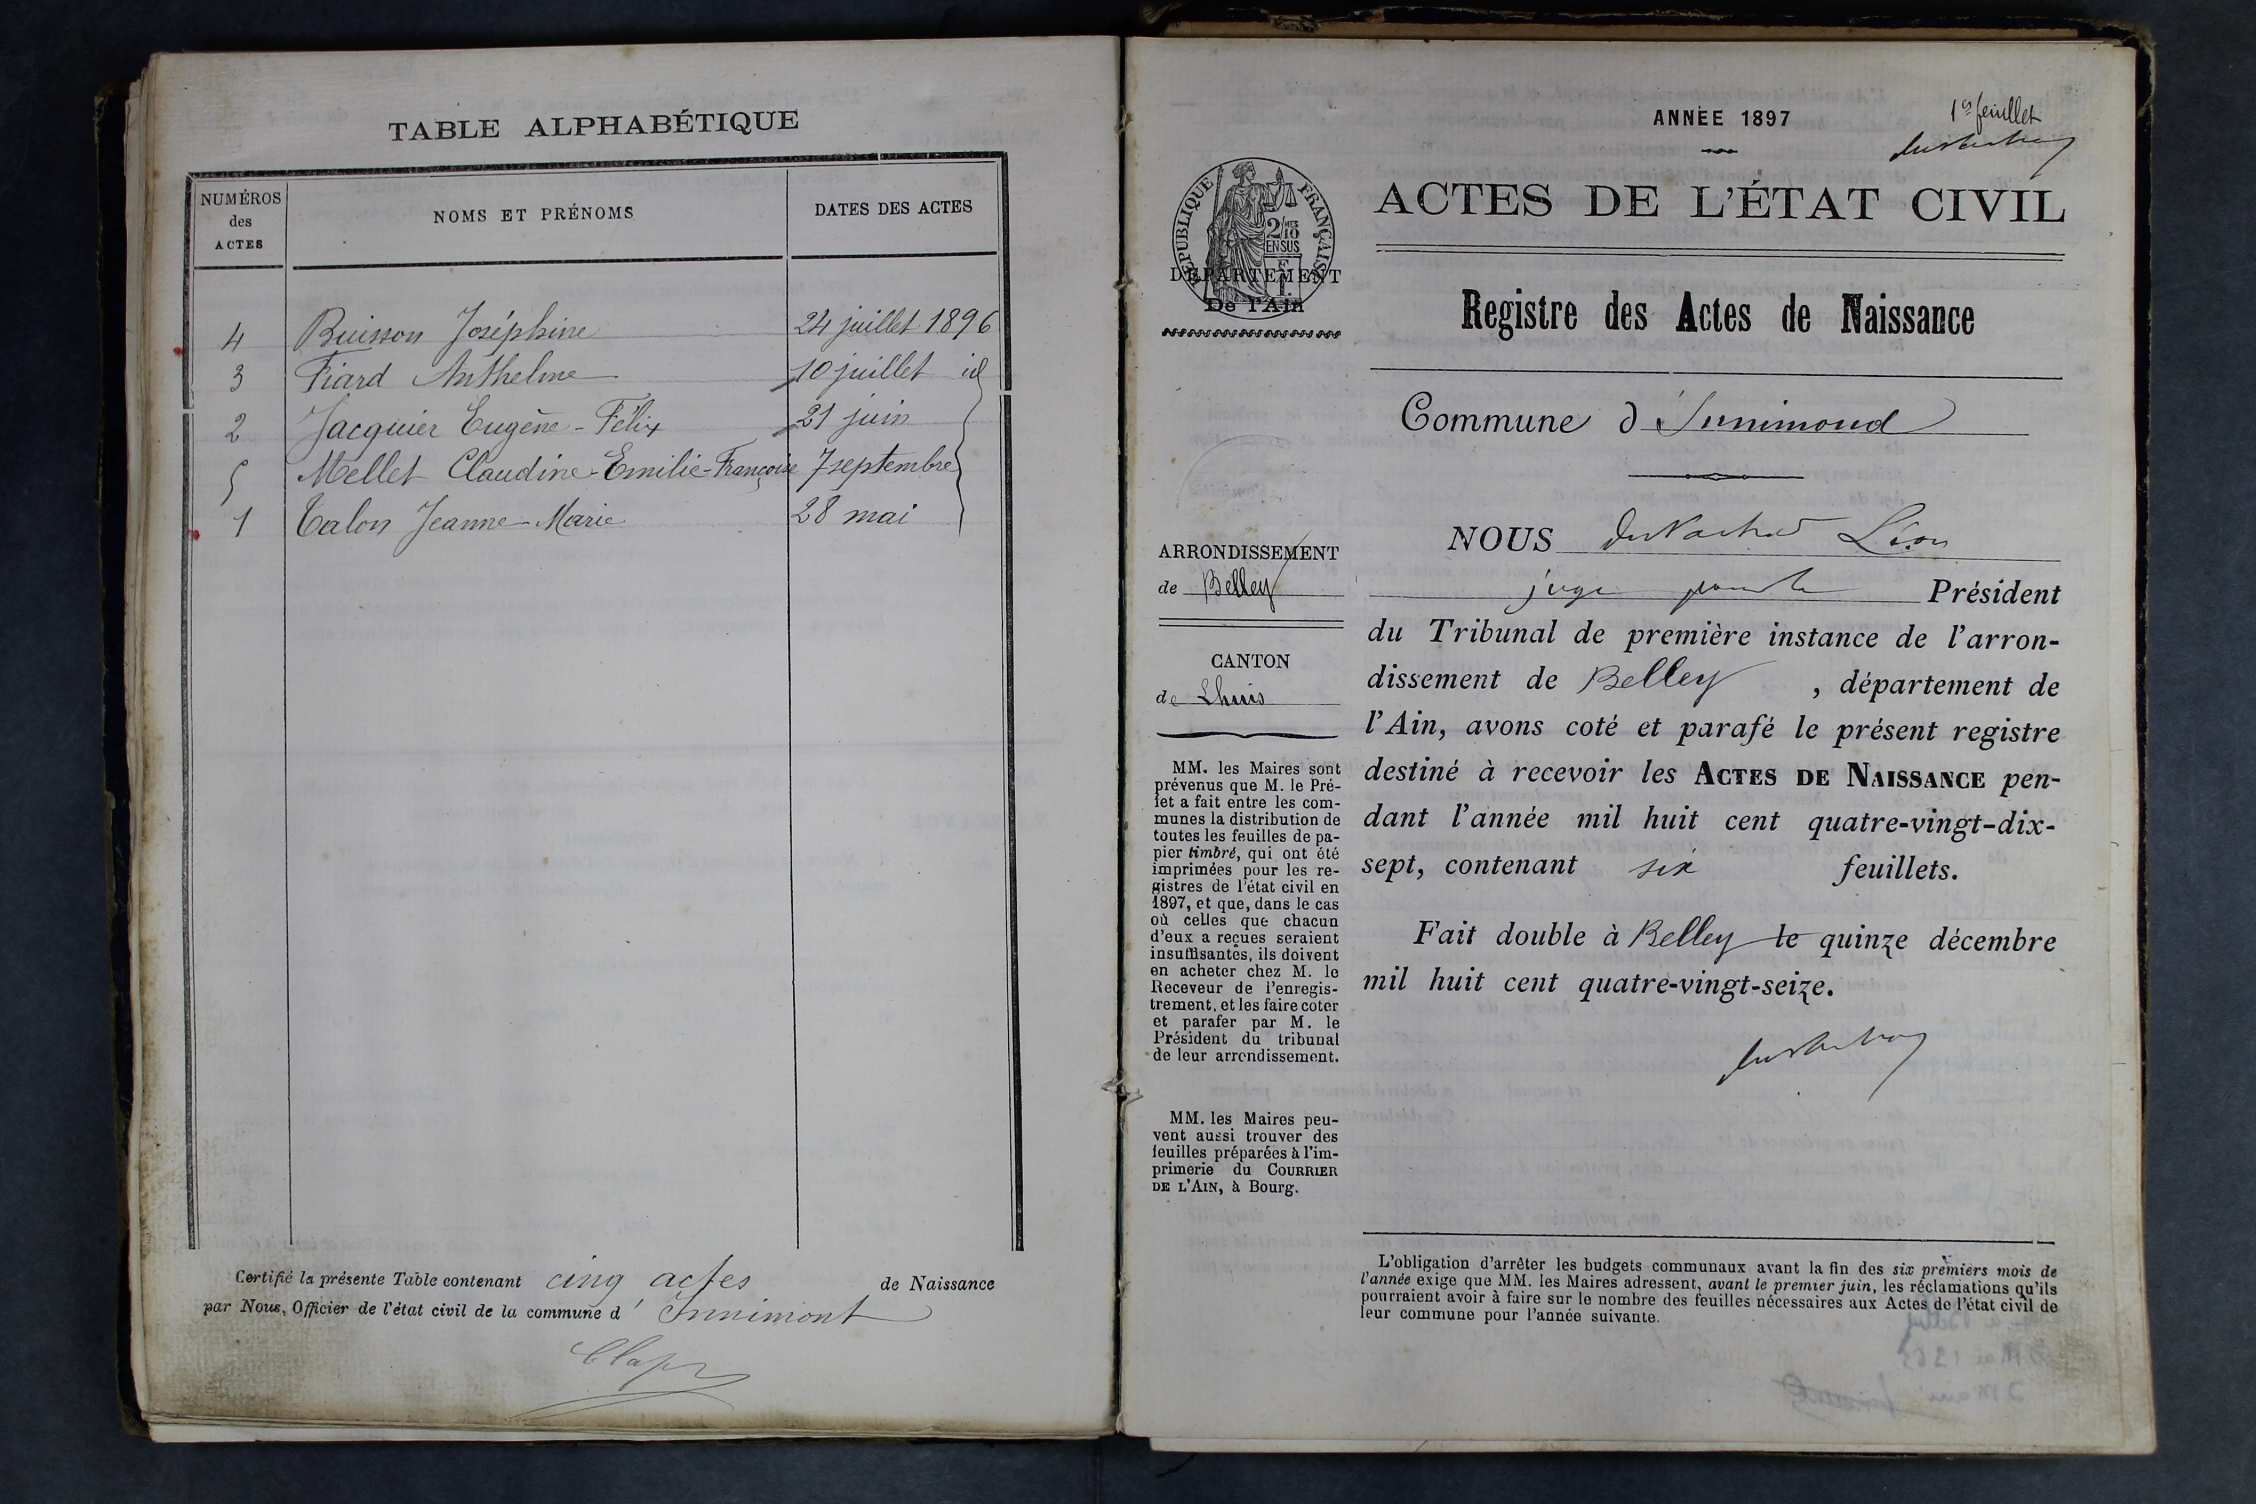 TABLE ALPHABÉTIQUE
NUMÉROS
des
ACTES
NOMS ET PRÉNOMS
DATES DES ACTES
4 Buisson Joséphine 24 juillet 1896
3 Fiard Anthelme 10 juillet id
2 Jacquier Eugène-Félix 21 juin
5 Mellet Claudine-Emilie-Françoise 7 septembre
1 Talon Jeanne-Marie 28 mai
Certifié la présente Table contenant cinq actes de Naissance
par Nous, Officier de l'état civil de la commune d' Innimont
1er feuillet
ANNÉE 1897
RÉPUBLIQUE FRANÇAISE
2/10
EN SUS
DÉPARTEMENT
De l'Ain
ACTES DE L'ÉTAT CIVIL
Registre des Actes de Naissance
Commune d'Innimond
ARRONDISSEMENT
de Belley
CANTON
de Lhuis
MM. les Maires sont
prévenus que M. le Pré-
fet a fait entre les com-
munes la distribution de
toutes les feuilles de pa-
pier timbré, qui ont été
imprimées pour les re-
gistres de l'état civil en
1897, et que, dans le cas
où celles que chacun
d'eux a reçues seraient
insuffisantes, ils doivent
en acheter chez M. le
Receveur de l'enregis-
trement, et les faire coter
et parafer par M. le
Président du tribunal
de leur arrondissement.
MM. les Maires peu-
vent aussi trouver des
feuilles préparées à l'im-
primerie du COURRIER
DE L'AIN, à Bourg.
NOUS Léon
juge Président
du Tribunal de première instance de l'arron-
dissement de Belley, département de
l'Ain, avons coté et parafé le présent registre
destiné à recevoir les ACTES DE NAISSANCE pen-
dant l'année mil huit cent quatre-vingt-dix-
sept, contenant six feuillets.
Fait double à Belley le quinze décembre
mil huit cent quatre-vingt-seize.
L'obligation d'arrêter les budgets communaux avant la fin des six premiers mois de
l'année exige que MM. les Maires adressent, avant le premier juin, les réclamations qu'ils
pourraient avoir à faire sur le nombre des feuilles nécessaires aux Actes de l'état civil de
leur commune pour l'année suivante.